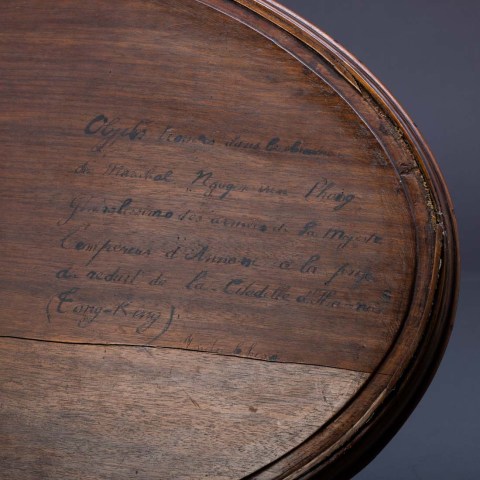 Objets trouvés dans le bureau
du Maréchal Nguyen van Phuong
généralissime des armées de la Majesté
l'empereur d'Annam à la prise
du réduit de la Citadelle d'Ha-noi
(Tong-King)